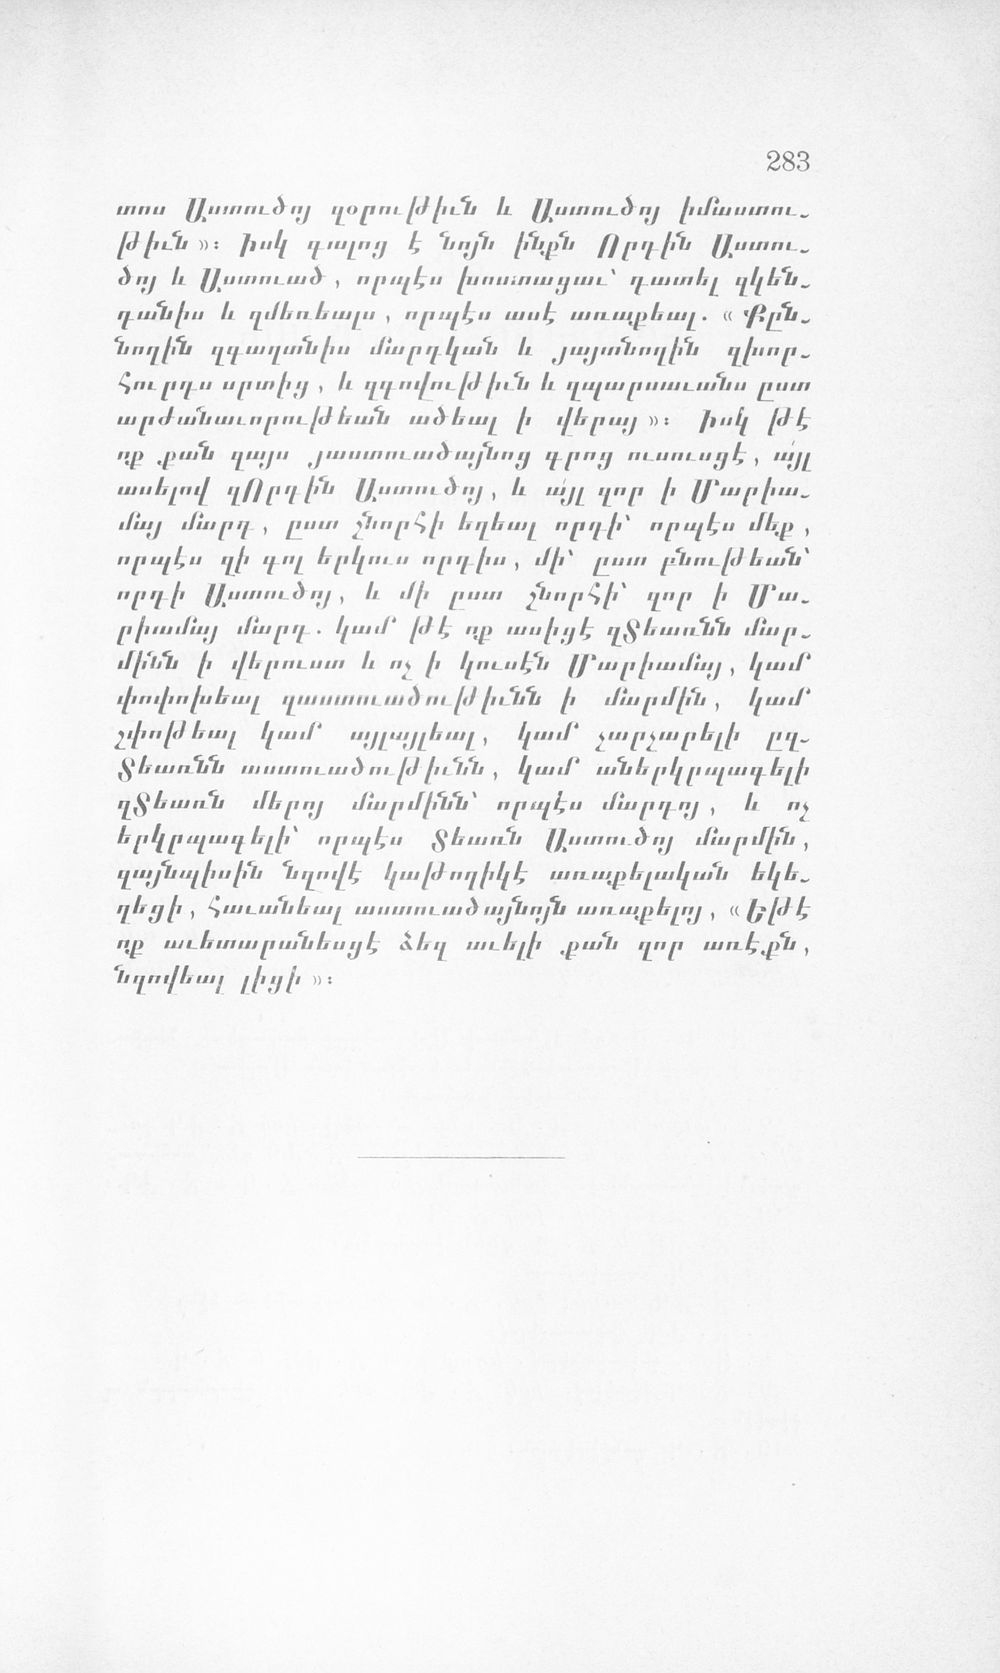 283
տոս Աստուծոյ զօրութիւն և Աստուծոյ իմաստու֊
թիւն»։ Իսկ գալոց է նոյն ինքն Որդին Աստու֊
ծոյ և Աստուած, որպէս խոստացաւ՝ դատել զկեն֊
դանիս և զմեռեալս, որպէս ասէ առաքեալ. «Քըն֊
նողին զգաղտնիս մարդկան և յայտնողին զխոր֊
հուրդս սրտից, և զգովութիւն և զպարսաւանս ըստ
արժանաւորութեան ածեալ ի վերայ»։ Իսկ թէ
ոք քան զայս յաստուածայնոց գրոց ուսուսցէ, ա՛յլ
ասելով զՈրդին Աստուծոյ, և ա՛յլ զոր ի Մարիա֊
մայ մարդ, ըստ շնորհի եղեալ որդի՝ որպէս մեք,
որպէս զի գոլ երկուս որդիս, մի՝ ըստ բնութեան՝
որդի Աստուծոյ, և մի ըստ շնորհի՝ զոր ի Մա֊
րիամայ մարդ. կամ թէ ոք ասիցէ զՏեառնն մար֊
մինն ի վերուստ և ոչ ի կուսէն Մարիամայ, կամ
փոփոխեալ զաստուածութիւնն ի մարմին, կամ
շփոթեալ կամ այլայլեալ, կամ չարչարելի ըզ֊
Տեառնն աստուածութիւնն, կամ աներկրպագելի
զՏեառն մերոյ մարմինն՝ որպէս մարդոյ, և ոչ
երկրպագելի՝ որպէս Տեառն Աստուծոյ մարմին,
զայնպիսին նզովէ կաթողիկէ առաքելական եկե֊
ղեցի, հաւանեալ աստուածայնոյն առաքելոյ, «Եթէ
ոք աւետարանեսցէ ձեզ աւելի քան զոր առէքն,
նզովեալ լիցի»։